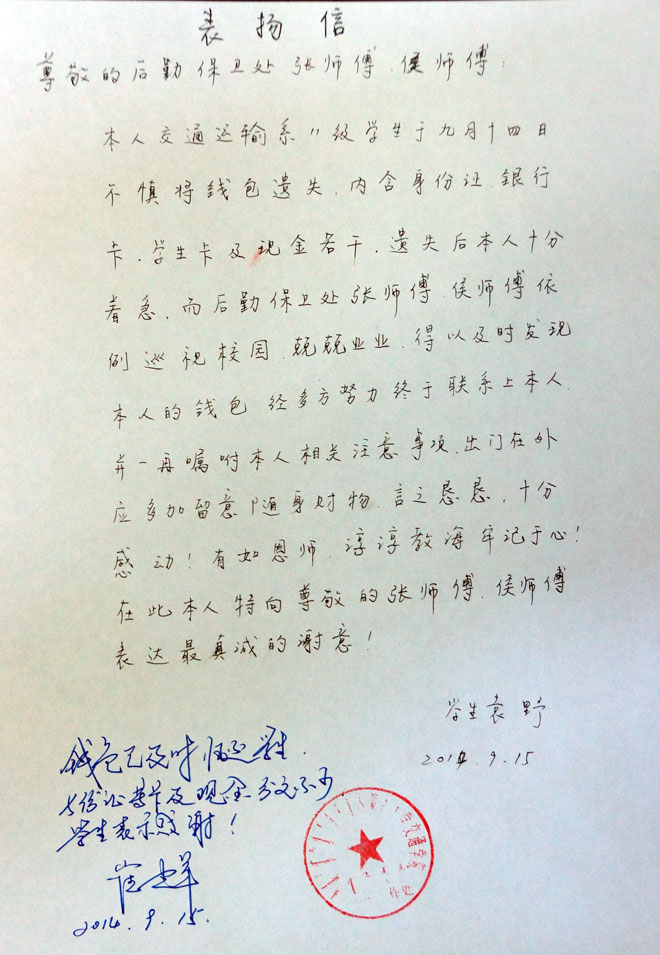 表扬信
尊敬的后勤保卫处张师傅、侯师傅:
本人交通运输系11级学生于九月十四日
不慎将钱包遗失,内含身份证、银行
卡、学生卡及现金若干,遗失后本人十分
着急,而后勤保卫处张师傅、侯师傅依
例巡视校园,兢兢业业,得以及时发现
本人的钱包 经多方努力终于联系上本人,
并一再嘱咐本人相关注意事项,出门在外
应多加留意随身财物,言之恳恳,十分
感动!有如恩师,淳淳教海牢记于心!
在此本人特向尊敬的张师傅、侯师傅
表达最真诚的谢意!
学生袁野
2014.9.15
钱包已及时归还学生.
身份证等卡及现金分文不少
学生表示感谢!
2014.9.15.